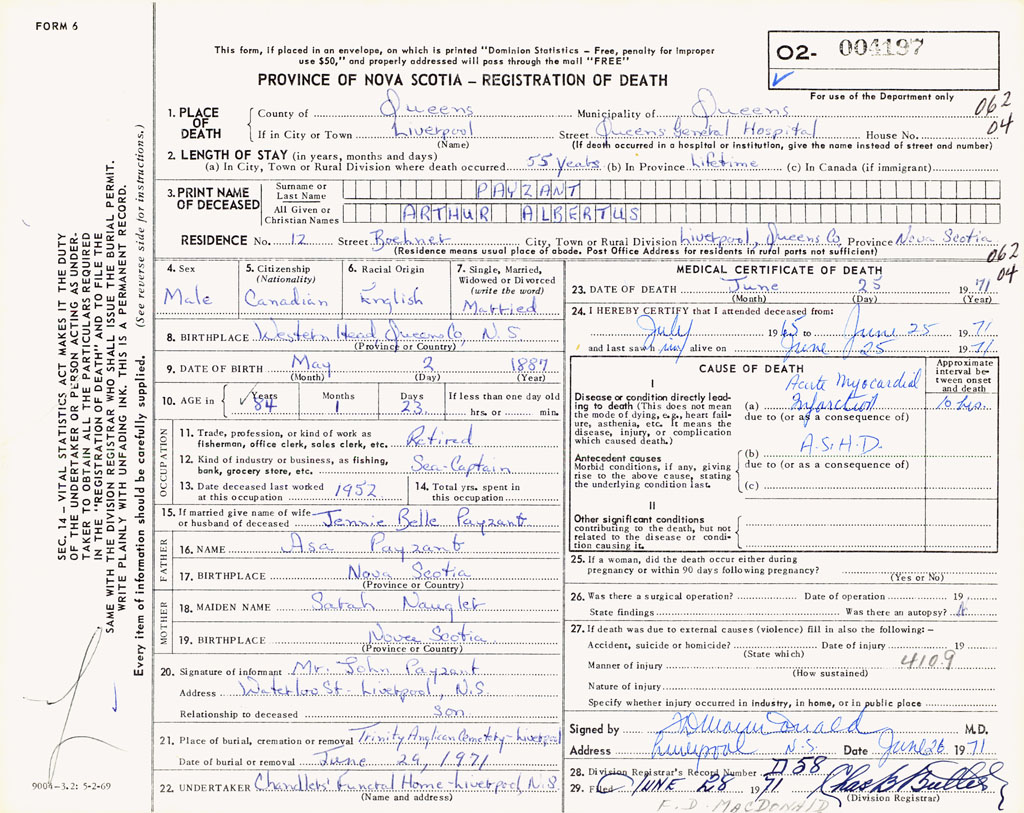 FORM 6
This form, if placed in an envelope, on which is printed "Dominion Statistics – Free, penalty for improper
use $50," and properly addressed will pass through the mail "FREE"
02- 004197
PROVINCE OF NOVA SCOTIA – REGISTRATION OF DEATH
For use of the Department only
062
04
1. PLACE OF DEATH
County of Queens Municipality of Queens
If in City or Town Liverpool Street Queens General Hospital House No.
(Name) (If death occurred in a hospital or institution, give the name instead of street and number)
2. LENGTH OF STAY (in years, months and days)
(a) In City, Town or Rural Division where death occurred 55 years (b) In Province Lifetime (c) In Canada (if immigrant)
3. PRINT NAME OF DECEASED
Surname or Last Name PAYZANT
All Given or Christian Names ARTHUR ALBERTUS
RESIDENCE No. 12 Street Boehner City, Town or Rural Division Liverpool, Queens Co, Province Nova Scotia
(Residence means usual place of abode. Post Office Address for residents in rural parts not sufficient)
062
04
4. Sex
Male
5. Citizenship
(Nationality)
Canadian
6. Racial Origin
English
7. Single, Married,
Widowed or Divorced
(write the word)
Married
8. BIRTHPLACE Western Head, Queens Co N.S.
(Province or Country)
9. DATE OF BIRTH May 2 1887
(Month) (Day) (Year)
10. AGE in Years 84 Months 1 Days 23 If less than one day old
hrs. or min.
OCCUPATION
11. Trade, profession, or kind of work as
fisherman, office clerk, sales clerk, etc. Retired
12. Kind of industry or business, as fishing,
bank, grocery store, etc. Sea-Captain
13. Date deceased last worked
at this occupation 1952
14. Total yrs. spent in
this occupation
15. If married give name of wife
or husband of deceased Jennie Belle Payzant
FATHER
16. NAME Asa Payzant
17. BIRTHPLACE Nova Scotia
(Province or Country)
MOTHER
18. MAIDEN NAME Sarah Naugler
19. BIRTHPLACE Nova Scotia
(Province or Country)
20. Signature of informant Mr. John Payzant
Address Waterloo St - Liverpool, N.S.
Relationship to deceased son
21. Place of burial, cremation or removal Trinity Anglican Cemetery - Liverpool
Date of burial or removal June 29, 1971
22. UNDERTAKER Chandlers' Funeral Home - Liverpool, N.S.
(Name and address)
MEDICAL CERTIFICATE OF DEATH
23. DATE OF DEATH June 25 1971
(Month) (Day) (Year)
24. I HEREBY CERTIFY that I attended deceased from:
July 1965 to June 25 1971
and last saw him alive on June 25 1971
CAUSE OF DEATH
Approximate
interval be-
tween onset
and death
I
Disease or condition directly lead-
ing to death (This does not mean
the mode of dying, e.g., heart fail-
ure, asthenia, etc. It means the
disease, injury, or complication
which caused death.)
(a) Acute Myocardial
Infarction 10 hrs.
due to (or as a consequence of)
Antecedent causes
Morbid conditions, if any, giving
rise to the above cause, stating
the underlying condition last.
(b) A.S.H.D.
due to (or as a consequence of)
(c)
II
Other significant conditions
contributing to the death, but not
related to the disease or condi-
tion causing it.
25. If a woman, did the death occur either during
pregnancy or within 90 days following pregnancy?
(Yes or No)
26. Was there a surgical operation? Date of operation 19
State findings Was there an autopsy?
27. If death was due to external causes (violence) fill in also the following: –
Accident, suicide or homicide? Date of injury 19
(State which)
4109
Manner of injury
(How sustained)
Nature of injury
Specify whether injury occurred in industry, in home, or in public place
Signed by M.D.
Address Liverpool N.S. Date June 26 1971
28. Division Registrar's Record Number 58
29. Filed JUNE 28 1971
(Division Registrar)
F. D. MACDONALD
SEC. 14 – VITAL STATISTICS ACT MAKES IT THE DUTY
OF THE UNDERTAKER OR PERSON ACTING AS UNDER-
TAKER TO OBTAIN ALL THE PARTICULARS REQUIRED
IN THE "REGISTRATION OF DEATH" AND TO FILE THE
SAME WITH THE DIVISION REGISTRAR WHO SHALL ISSUE THE BURIAL PERMIT.
WRITE PLAINLY WITH UNFADING INK. THIS IS A PERMANENT RECORD.
Every item of information should be carefully supplied. (See reverse side for instructions.)
9004–3.2: 5-2-69